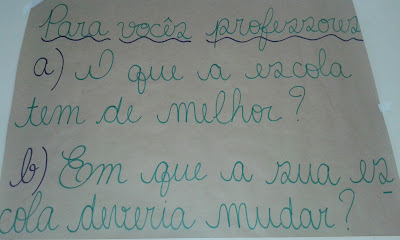 Para vocês professores
a) O que a escola
tem de melhor?
b) Em que a sua es-
cola deveria mudar?